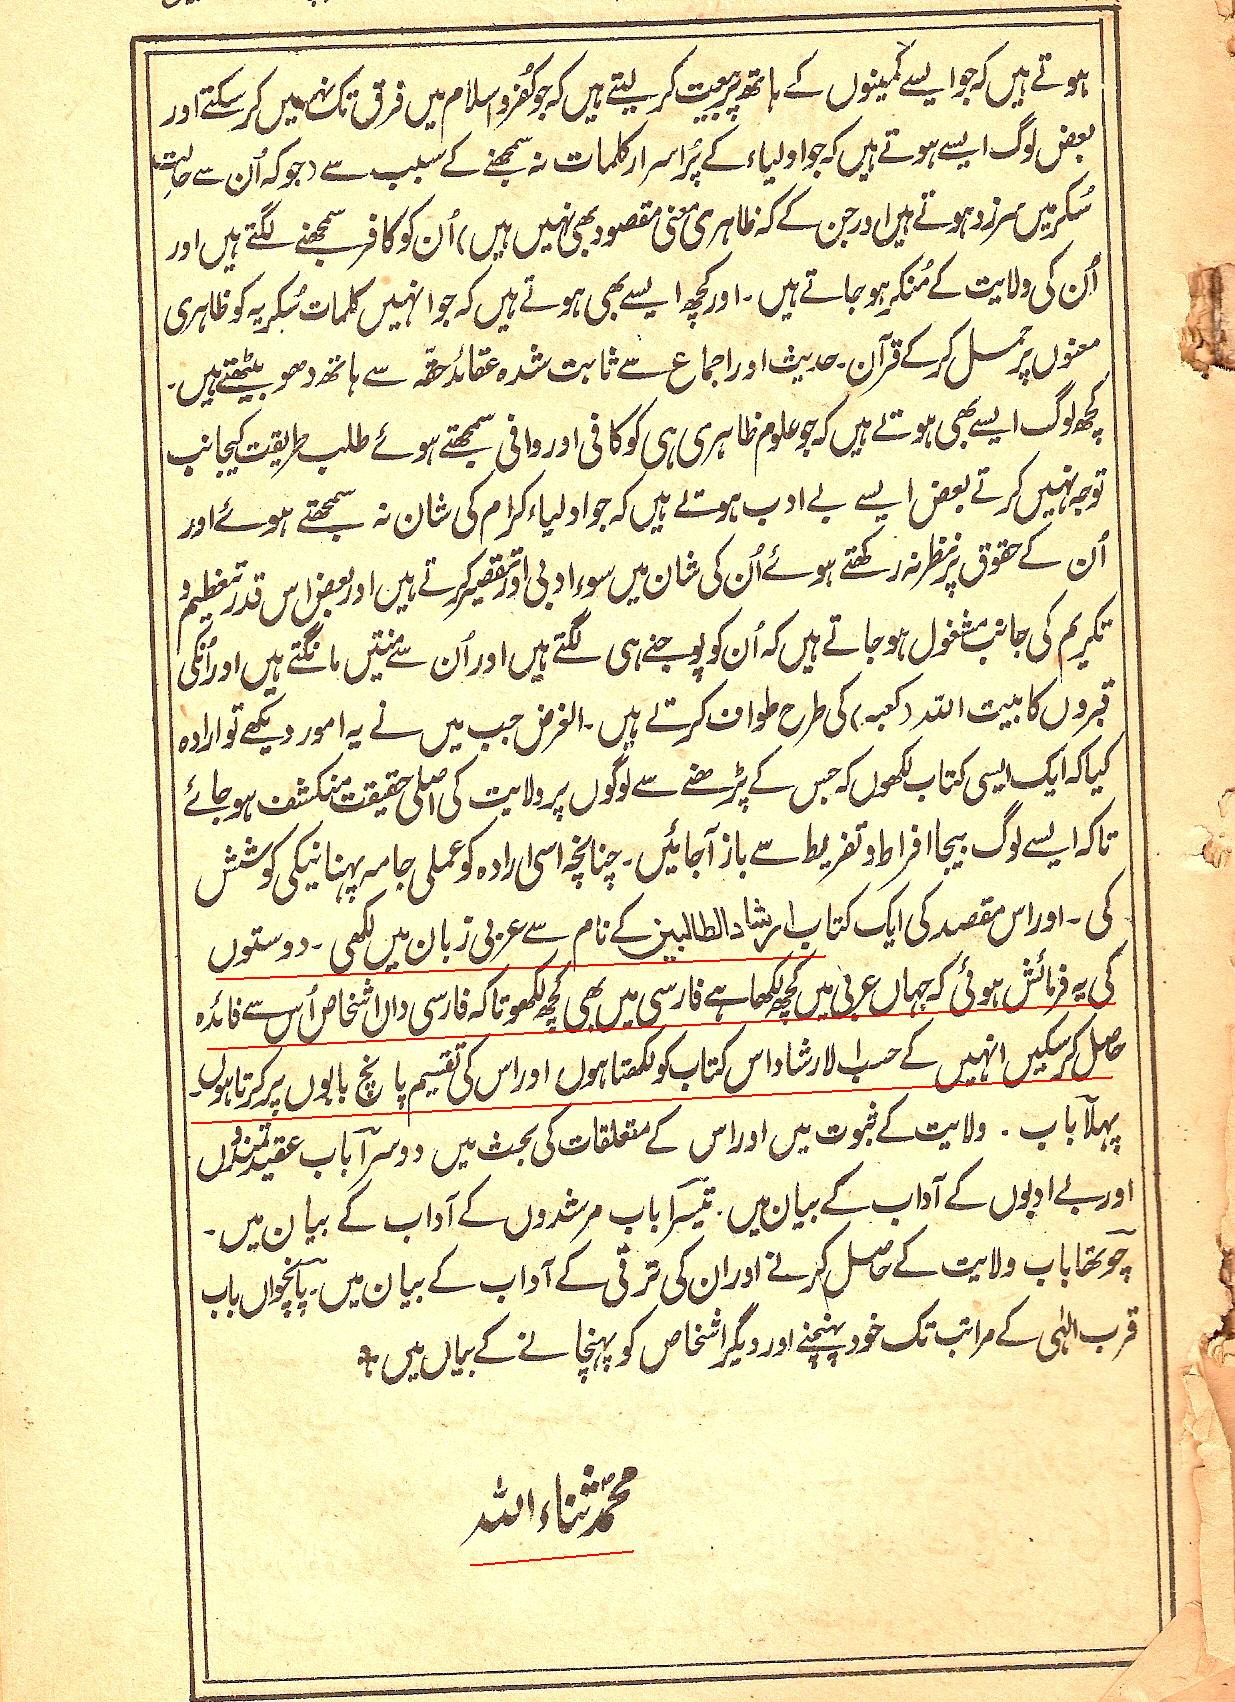 ہوتے ہیں کہ جو ایسے کمینوں کے ہاتھ پر بیعت کر لیتے ہیں کہ جو کفر و اسلام میں فرق تک نہیں کر سکتے اور
بعض لوگ ایسے ہوتے ہیں کہ جو اولیاء کے پُر اسرار کلمات نہ سمجھنے کے سبب سے (جو کہ اُن سے حالتِ
سُکر میں سرزد ہوتے ہیں اور جن کے کہ ظاہری معنی مقصود بھی نہیں ہیں) اُن کو کافر سمجھنے لگتے ہیں اور
اُن کی ولایت کے مُنکر ہو جاتے ہیں۔ اور کچھ ایسے بھی ہوتے ہیں کہ جو انہیں کلمات سُکریہ کو ظاہری
معنوں پر حمل کر کے قرآن۔ حدیث اور اجماع سے ثابت شدہ عقائد حقّہ سے ہاتھ دھو بیٹھتے ہیں۔
کچھ لوگ ایسے بھی ہوتے ہیں کہ جو علوم ظاہری ہی کو کافی اور وافی سمجھتے ہوئے طلب طریقت کیجانب
توجہ نہیں کرتے بعض ایسے بے ادب ہوتے ہیں کہ جو اولیاء کرام کی شان نہ سمجھتے ہوئے اور
اُن کے حقوق پر نظر نہ رکھتے ہوئے اُن کی شان میں سوء ادبی اور تقصیر کرتے ہیں اور بعض اس قدر تعظیم و
تکریم کی جانب مشغول ہو جاتے ہیں کہ اُن کو پوجنے ہی لگتے ہیں اور اُن سے منتیں مانگتے ہیں اور اُنکی
قبروں کا بیت اللہ (کعبہ) کی طرح طواف کرتے ہیں۔ الغرض جب میں نے یہ امور دیکھے تو ارادہ
کیا کہ ایک ایسی کتاب لکھوں کہ جس کے پڑھنے سے لوگوں پر ولایت کی اصلی حقیقت منکشف ہو جائے
تاکہ ایسے لوگ بیجا افراط و تفریط سے باز آجائیں۔ چنانچہ اسی ارادہ کو عملی جامہ پہنانیکی کوشش
کی۔ اور اس مقصد کی ایک کتاب ارشاد الطالبین کے نام سے عربی زبان میں لکھی۔ دوستوں
کی یہ فرمائش ہوئی کہ جہاں عربی میں کچھ لکھا ہے فارسی میں بھی کچھ لکھو تاکہ فارسی دان اشخاص اُس سے فائدہ
حاصل کر سکیں انہیں کے حسب الارشاد اس کتاب کو لکھتا ہوں اور اس کی تقسیم پانچ بابوں پر کرتا ہوں۔
پہلا باب۔ ولایت کے ثبوت میں اور اس کے متعلقات کی بحث میں دوسرا باب عقیدتمندوں
اور بے ادبوں کے آداب کے بیان میں۔ تیسرا باب مرشدوں کے آداب کے بیان میں۔
چوتھا باب ولایت کے حاصل کرنے اور ان کی ترقی کے آداب کے بیان میں۔ پانچواں باب
قرب الٰہی کے مراتب تک خود پہنچنے اور دیگر اشخاص کو پہنچانے کے بیاں میں
محمد ثناء اللہ